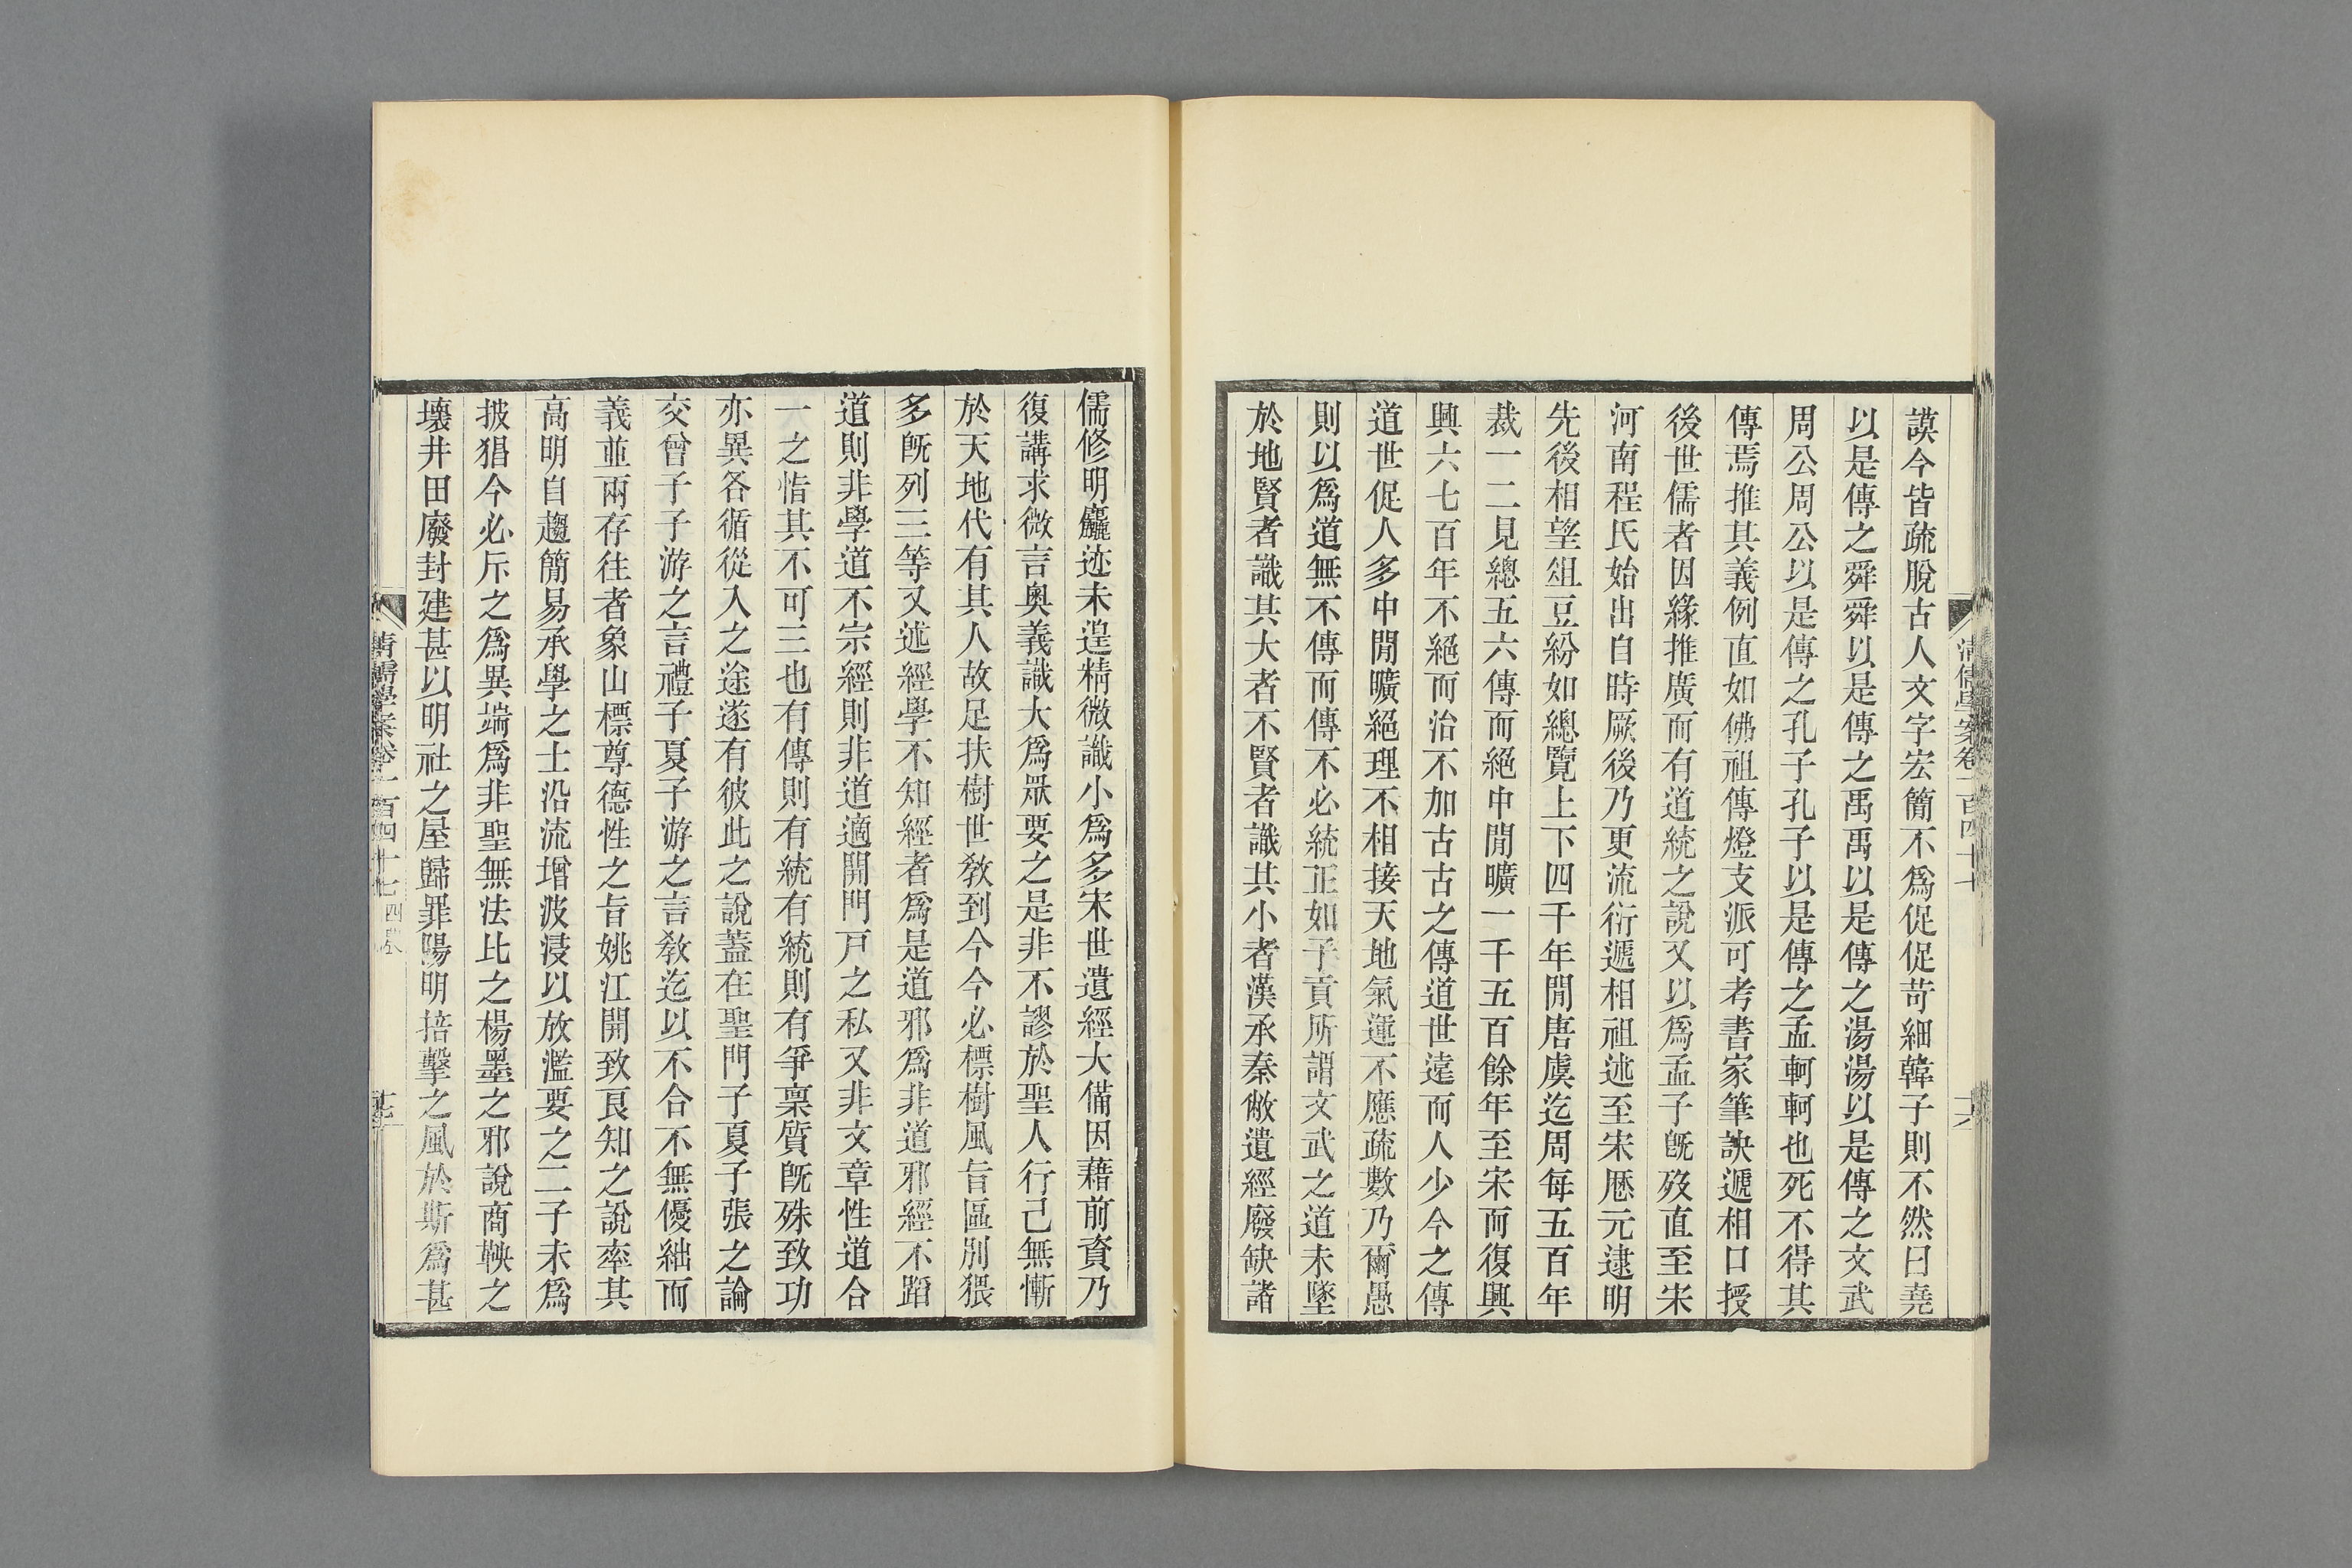 謨今皆疏脫古人文字宏簡不爲促促苛細韓子則不然曰堯
以是傳之舜舜以是傳之禹禹以是傳之湯湯以是傳之文武
周公周公以是傳之孔子孔子以是傳之孟軻軻也死不得其
傳焉推其義例直如佛祖傳燈支派可考書家筆訣遞相口授
後世儒者因緣推廣而有道統之說又以爲孟子旣歿直至宋
河南程氏始出自時厥後乃更流衍遞相祖述至宋厯元逮明
先後相望俎豆紛如總覽上下四千年閒唐虞迄周每五百年
裁一二見總五六傳而絕中閒曠一千五百餘年至宋而復興
興六七百年不絕而治不加古古之傳道世遠而人少今之傳
道世促人多中閒曠絕理不相接天地氣運不應疏數乃爾愚
則以爲道無不傳而傳不必統正如子貢所謂文武之道未墜
於地賢者識其大者不賢者識其小者漢承秦敝遺經廢缺諸
清儒學案卷一百四十七
十六
儒修明麤迹未遑精微識小爲多宋世遺經大備因藉前資乃
復講求微言奧義識大爲眾要之是非不謬於聖人行己無慚
於天地代有其人故足扶樹世敎到今今必標樹風旨區別猥
多旣列三等又述經學不知經者爲是道邪爲非道邪經不蹈
道則非學道不宗經則非道適開門戸之私又非文章性道合
一之恉其不可三也有傳則有統有統則有爭稟質旣殊致功
亦異各循從入之途遂有彼此之說蓋在聖門子夏子張之論
交曾子子游之言禮子夏子游之言敎迄以不合不無優絀而
義並兩存往者象山標尊德性之旨姚江開致良知之說率其
高明自趨簡易承學之士沿流增波浸以放濫要之二子未爲
披猖今必斥之爲異端爲非聖無法比之楊墨之邪說商鞅之
壞井田廢封建甚以明社之屋歸罪陽明掊擊之風於斯爲甚
清儒學案卷一百四十七
十七